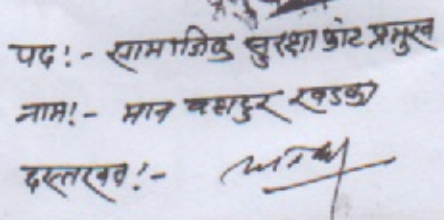 पद :- सामाजिक सुरक्षा फाँट प्रमुख
नाम :- मान बहादुर खडका
दस्तखत :-